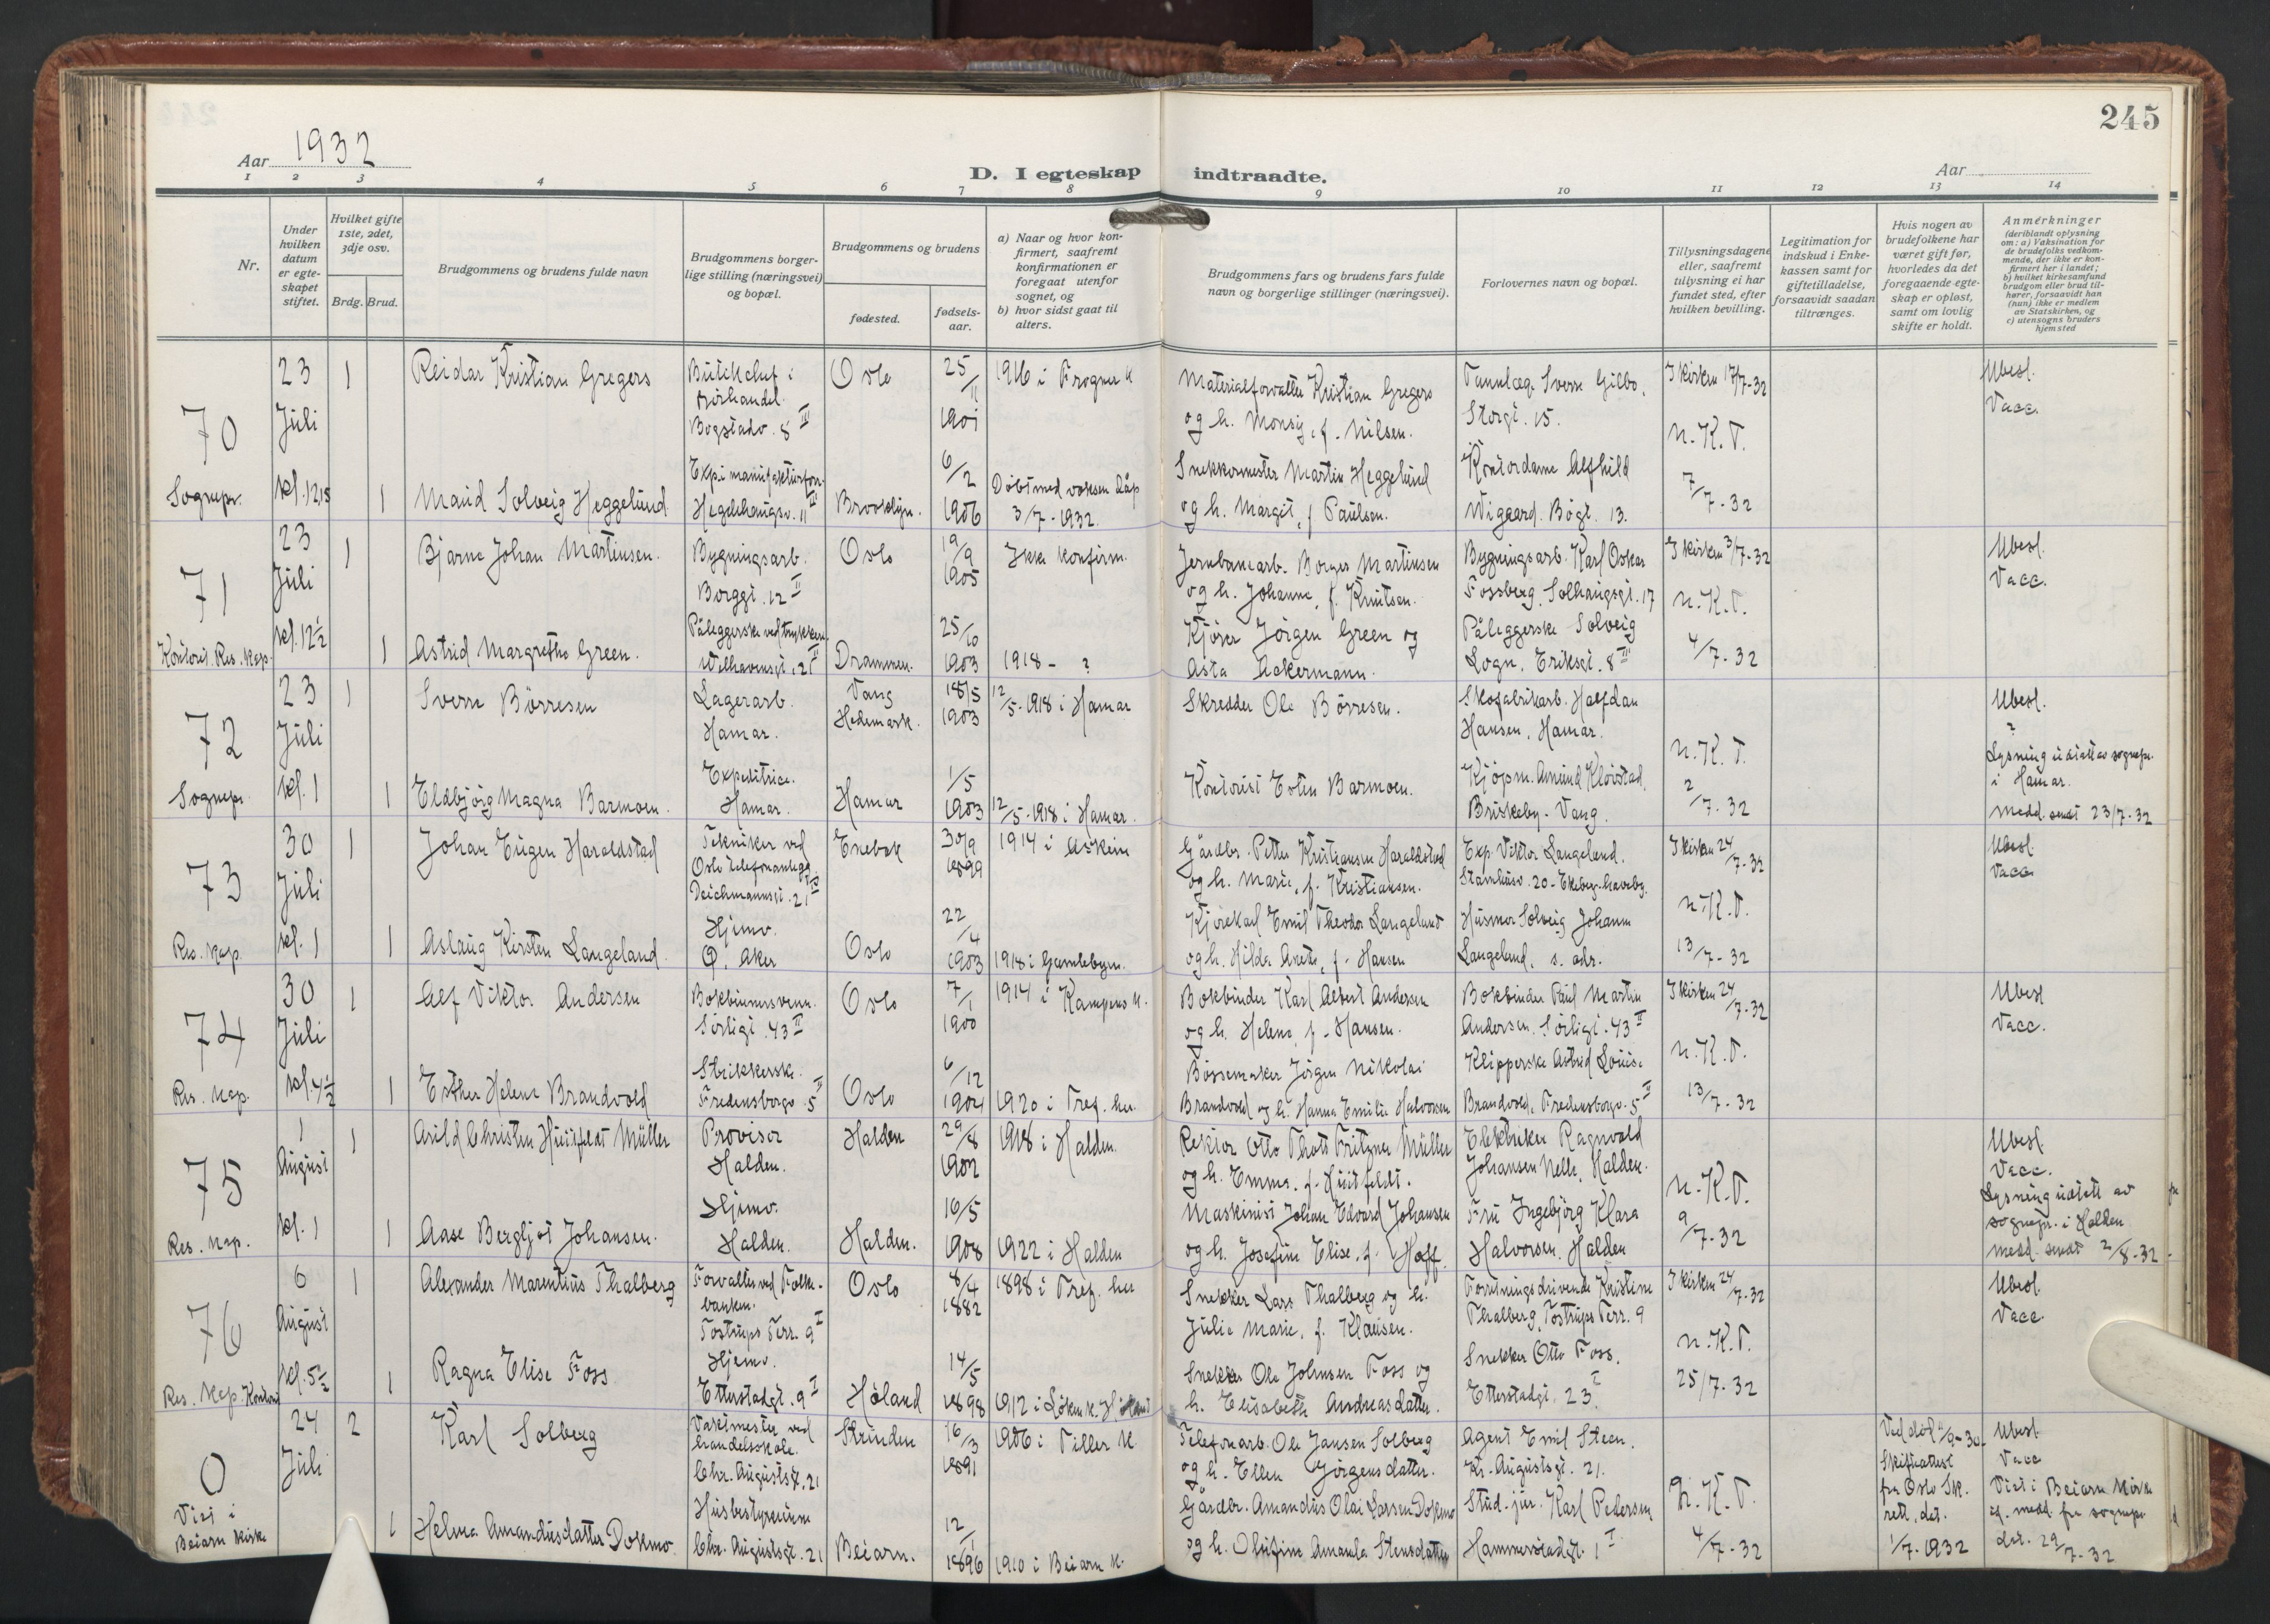 245
Aar 1932
D. I egteskap indtraadte.
Aar
1 2 3 4 5 6 7 8 9 10 11 12 13 14
Nr.
Under hvilken datum er egteskapet stiftet.
Hvilket gifte 1ste, 2det, 3dje osv.
Brdg. Brud.
Brudgommens og brudens fulde navn
Brudgommens borgerlige stilling (næringsvei) og bopæl.
Brudgommens og brudens
fødested.
fødselsaar.
a) Naar og hvor konfirmert, saafremt konfirmationen er foregaat utenfor sognet, og
b) hvor sidst gaat til alters.
Brudgommens fars og brudens fars fulde navn og borgerlige stillinger (næringsvei).
Forlovernes navn og bopæl.
Tillysningsdagene eller, saafremt tillysning ei har fundet sted, efter hvilken bevilling.
Legitimation for indskud i Enkekassen samt for giftetilladelse, forsaavidt saadan tiltrænges.
Hvis nogen av brudefolkene har været gift før, hvorledes da det foregaaende egteskap er opløst, samt om lovlig skifte er holdt.
Anmerkninger (deriblandt oplysning om: a) Vaksination for de brudefolks vedkommende, der ikke er konfirmert her i landet; b) hvilket kirkesamfund brudgom eller brud tilhører, forsaavidt han (hun) ikke er medlem av Statskirken, og c) utensogns bruders hjemsted
70 Sognepr.
23 Juli kl. 12,15
1 Reidar Kristian Gregers
Butikchef i
Bogstadv. 8 III
Oslo
25/11 1901
1916 i Frogner K
Materialforvalter Kristian Gregers
og h. Monsy, f. Nilsen.
Tannlæge Sverre Gilbo.
Storgt. 15.
I kirken 17/7-32
N.K.T.
7/7-32
Ubesl.
Vacc.
1 Maud Solveig Heggelund
Hegdehaugsv. 11 III
Brooklyn.
6/2 1906
Döbt med voksen dåp
3/7-1932.
Snekkermester Martin Heggelund
og h. Margit, f. Paulsen.
Kontordame Alfhild
Wigaard. Bögt. 13.
71 Kontorist. Res. Kap.
23 Juli kl. 12 1/2
1 Bjarne Johan Martinsen.
Bygningsarb.
Borggt. 12 II
Oslo
19/9 1905
Ikke konfirm.
Jernbanearb. Borger Martinsen
og h. Johanne, f. Knutsen.
Bygningsarb. Karl Oskar
Fossberg, Solhaugsgt. 17
I kirken 3/7-32
N.K.T.
4/7-32
Ubesl.
Vacc.
1 Astrid Margrethe Green.
Påleggerske ved trykkeri.
Welhavensgt. 21 II
Drammen.
25/10 1903
1918 - ?
Kjörer Jörgen Green og
Asta Ackermann.
Påleggerske Solveig
Logn. Eriksgt. 8 III
72 Sognepr.
23 Juli kl. 1
1 Sverre Börresen
Lagerarb.
Hamar.
Vang
Hedemark.
18/5 1903
12/5-1918 i Hamar
Skredder Ole Börresen.
Skofabrikarb. Halfdan
Hansen, Hamar.
N.K.T.
2/7-32
Ubesl.
?
Lysning utstett av sognepr.
i Hamar.
Medd. sendt 23/7-32
1 Eldbjörg Magna Barmoen.
Expeditrice.
Hamar.
Hamar
1/5 1903
12/5-1918 i Hamar.
Kontorist Esten Barmoen.
Kjöpm. Amund Klövstad,
Briskeby - Vang.
73 Res. Kap.
30 Juli kl. 1
1 Johan Eugen Haraldstad
Tekniker ved
Oslo telefonanlegg
Deichmannsgt. 21 III
Enebak
30/9 1899
1914 i Askim
Gårdbr. Petter Kristiansen Haraldstad
og h. Marie, f. Kristiansen.
Exp. Viktor Langeland.
Stamhusv. 20 - Ekeberg haveby.
I kirken 24/7-32
N.K.T.
13/7-32
Ubesl.
Vacc
1 Aslaug Kirsten Langeland.
Hjemv.
Ö. Aker
Oslo
22/4 1903
1918 i Gamlebyen.
Kjörekarl Emil Theodor Langeland
og h. Hilda Anette, f. Hansen
Husmor Solveig Johanne
Langeland, s. adr.
74 Res. Kap.
30 Juli kl. 4 1/2
1 Alf Viktor Andersen
Bokbindersvenn.
Sörligt. 43 II
Oslo
7/1 1900
1914 i Kampens K.
Bokbinder Karl Albert Andersen
og h. Helene, f. Hansen.
Bokbinder Paul Martin
Andersen. Sörligt. 43 II
I kirken 24/7-32
N.K.T.
13/7-32
Ubesl
Vacc.
1 Esther Helene Brandvold
Strikkerske.
Fredensborgv. 5 II
Oslo
6/12 1904
1920 i Tref. her.
Bössemaker Jörgen Nikolai
Brandvold og h. Hanna Emilie Halvorsen
Klipperske Astrid Louise
Brandvold, Fredensborgv. 5 II
75 Res. Kap.
1 August kl. 1
1 Arild Christen Huitfeldt Müller
Provisor
Halden.
Halden
29/8 1902
1918 i Halden.
Rektor Otto Thott Fritzner Müller
og h. Emma, f. Huitfeldt.
Elektriker Ragnvald
Johansen Nelle, Halden.
N.K.T.
9/7-32
Ubesl
Vacc.
Lysning utstett av
sognepr. i Halden
Medd. sendt 2/8-32
1 Aase Bergljot Johansen.
Hjemv.
Halden.
Halden.
16/5 1908
1922 i Halden
Maskinist Johan Edvard Johansen
og h. Josefine Elise, f. Hoff.
Fru Ingebjörg Klara
Halvorsen. Halden
76 Res. Kap. Kontor
6 August kl. 5 1/2
1 Alexander Marentius Thalberg
Forvalter ved Folkebanken.
Tostrups Terr. 9 I
Oslo
8/4 1882
1898 i Tref. her
Snekker Lars Thalberg og h.
Julie Marie, f. Klausen.
Forretningsdrivende Kristine
Thalberg, Tostrups Terr. 9
I kirken 24/7-32
N.K.T.
25/7-32
Ubesl.
Vacc.
1 Ragna Elise Foss
Hjemv.
Etterstadgt. 9 I
Höland
14/5 1898
1912 i Löken K. Höland
Snekker Ole Johnsen Foss og
h. Elisabeth Andreasdatter.
Snekker Otto Foss.
Etterstadgt. 23 I
0 Viet i
Beiarn kirke
24 Juli
2 Karl Solberg
Vaktmester ved
handelsskole.
Chr. Augustsgt. 21
Strinden
16/3 1891
1906 i Tiller K.
Telefonarb. Ole Jansen Solberg
og h. Ellen Jörgensdatter.
Agent Emil Steen.
Kr. Augustsgt. 21.
N.K.T.
4/7-32
Ved död
Skifteattest
fra Oslo Sk.
rett, dat.
1/7-1932
Ubesl.
Vacc
Viet i Beiarn Kirke
ifl. medd. fra sognepr.
dat. 29/7-32
1 Helma Amandusdatter Dokmo.
Husbestyrerinne
Chr. Augustsgt. 21
Beiarn.
12/1 1896
1910 i Beiarn K.
Gårdbr. Amandus Olai Larsen Dokmo
og h. Olufine Amanda Stensdatter
Stud. jur. Karl Pedersen
Hammerstadgt. 1 I